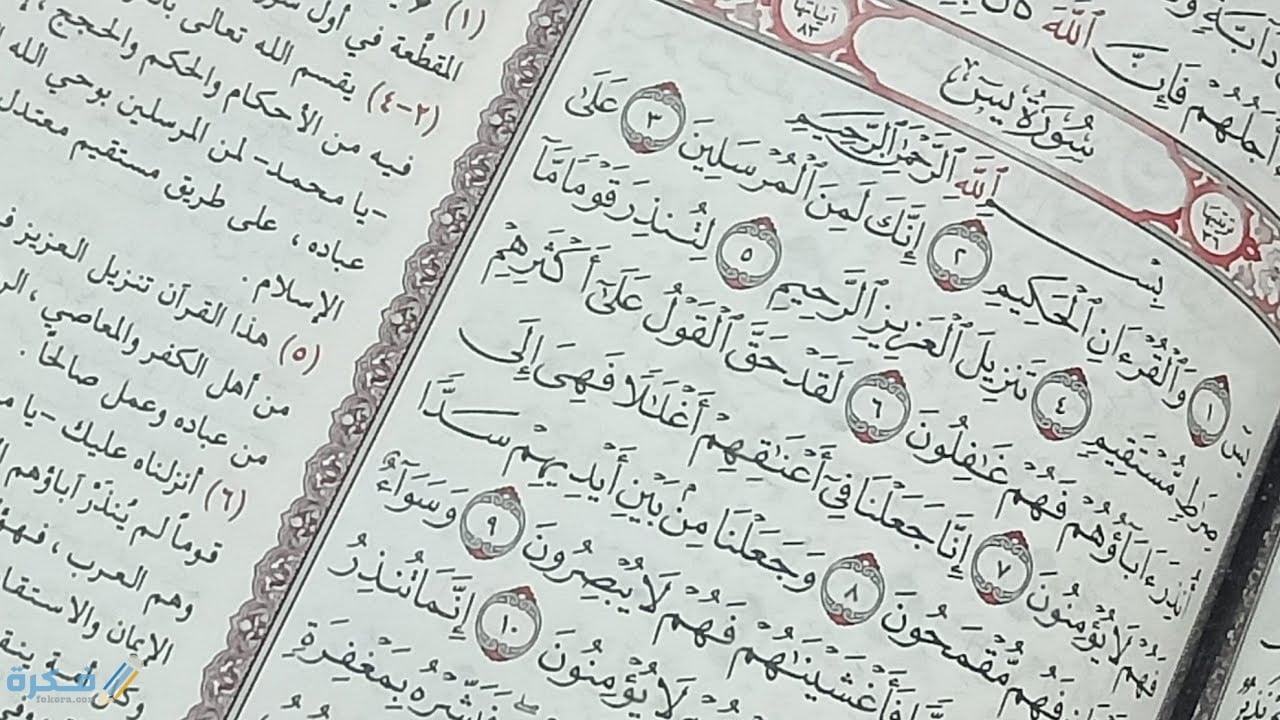 دَآبَّةٍ
أَجَلُهُمْ فَإِنَّ ٱللَّهَ
سُورَةُ يسٓ
آياتها ٨٣
ترتيبها ٣٦
بِسْمِ ٱللَّهِ ٱلرَّحْمَٰنِ ٱلرَّحِيمِ
يسٓ ١ وَٱلْقُرْءَانِ ٱلْحَكِيمِ ٢ إِنَّكَ لَمِنَ ٱلْمُرْسَلِينَ ٣ عَلَىٰ
صِرَٰطٍ مُّسْتَقِيمٍ ٤ تَنزِيلَ ٱلْعَزِيزِ ٱلرَّحِيمِ ٥ لِتُنذِرَ قَوْمًا مَّآ
أُنذِرَ ءَابَآؤُهُمْ فَهُمْ غَٰفِلُونَ ٦ لَقَدْ حَقَّ ٱلْقَوْلُ عَلَىٰٓ أَكْثَرِهِمْ
فَهُمْ لَا يُؤْمِنُونَ ٧ إِنَّا جَعَلْنَا فِىٓ أَعْنَٰقِهِمْ أَغْلَٰلًا فَهِىَ إِلَى
فَهُم مُّقْمَحُونَ ٨ وَجَعَلْنَا مِنۢ بَيْنِ أَيْدِيهِمْ سَدًّا
فَأَغْشَيْنَٰهُمْ فَهُمْ لَا يُبْصِرُونَ ٩ وَسَوَآءٌ
لَا يُؤْمِنُونَ ١٠ إِنَّمَا تُنذِرُ
فَبَشِّرْهُ بِمَغْفِرَةٍ
(١)
المقطَّعة في أول
(٢-٤) يقسم الله تعالى
فيه من الأحكام والحكم والحجج
-يا محمد- لمن المرسلين بوحي الله
عباده، على طريق مستقيم معتدل
الإسلام.
(٥) هذا القرآن تنزيل العزيز
من أهل الكفر والمعاصي،
من عباده وعمل صالحًا.
(٦) أنزلناه عليك -يا
قومًا لم يُنذَرْ آباؤهم
وهم العرب، فهؤ
الإيمان والاستقا
وكل
فكرة
fekera.com